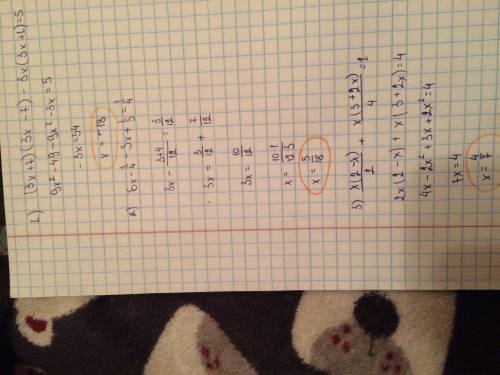 1) (3x+7)(3x-7)-3x(3x+1)=5
9x²-49-9x²-3x=5
-3x=54
x=-18
2) 6x-1/4-3x+1/3=1/4
3x-3+4/12=3/12
3x=3/12+7/12
3x=10/12
x=10·1/12·3
x=5/18
3) x(2-x)/2+x(3+2x)/4=1
2x(2-x)+x(3+2x)=4
4x-2x²+3x+2x²=4
7x=4
x=4/7